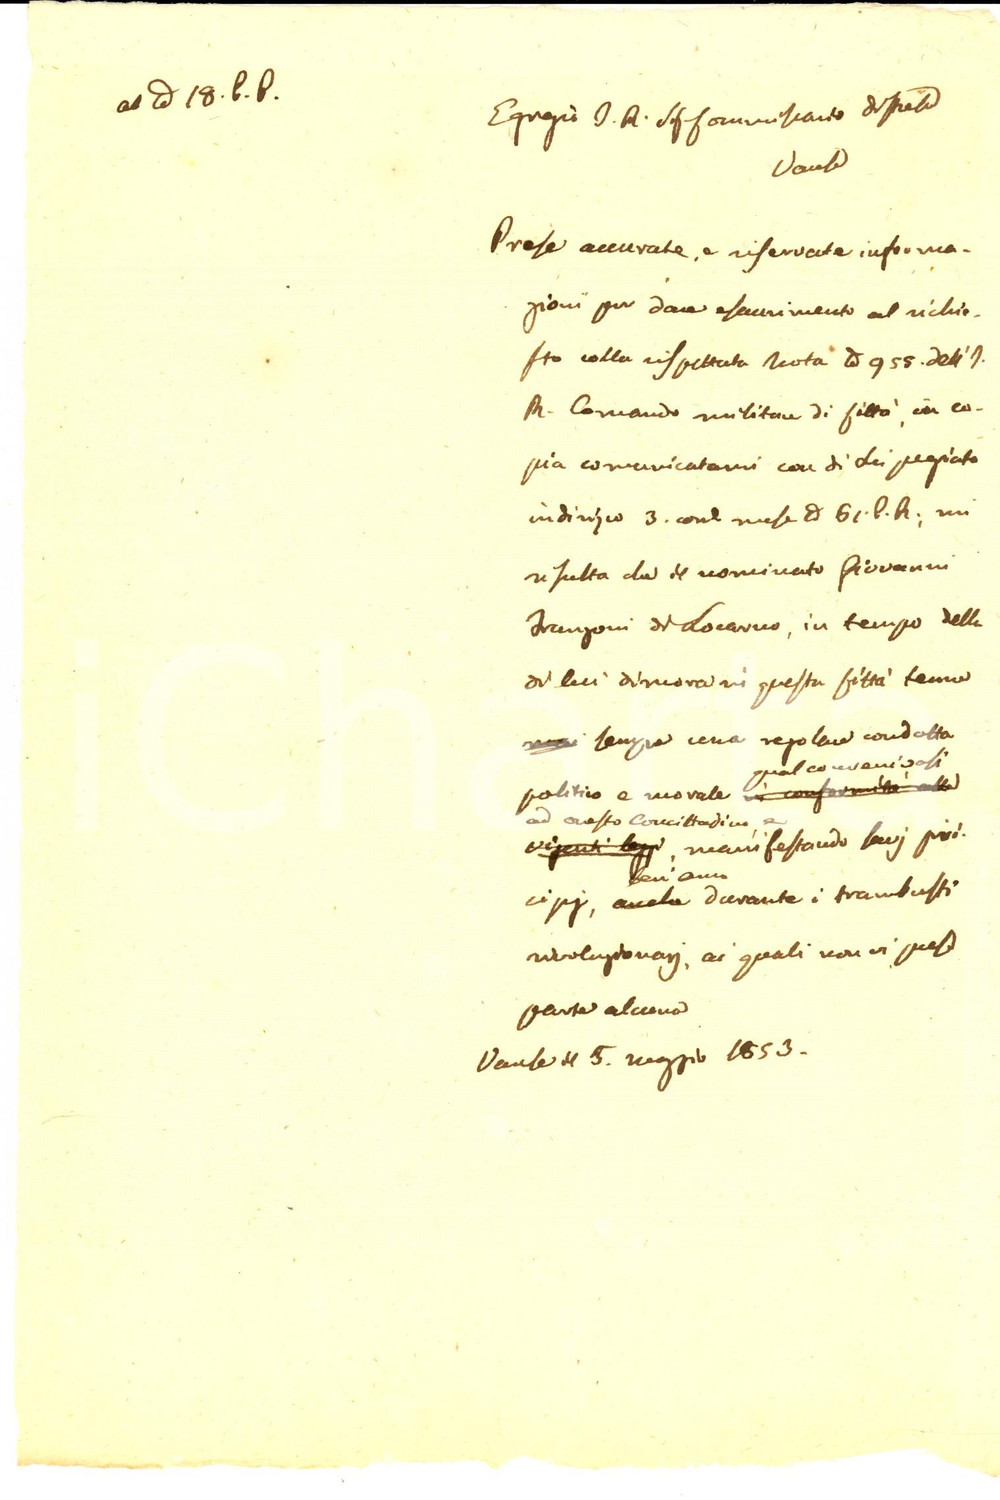 al N 18. P. P.
Egregio I. R. Sig. Commissario distrett.
Varese
Prese accurate, e riservate informa-
zioni per dare esaurimento al richie-
sto colla rispettata Nota N 955. dell' I.
R. Comando militare di Città, in co-
pia comunicatami con di Lei pregiato
indirizzo 3. corr. mese N 61. P. R., mi
risulta che il nominato Giovanni
Franzoni di Locarno, in tempo della
di lui dimora in questa Città tenne
mai sempre una regolare condotta
qual convenivasi
politica e morale in conformità alle
ad onesto Concittadino, e
vigenti leggi, manifestando savj prin-
ben anco
cipj, anche durante i trambusti
rivoluzionarj, ai quali non vi prese
parte alcuna
Varese il 5. maggio 1853.
iCharta